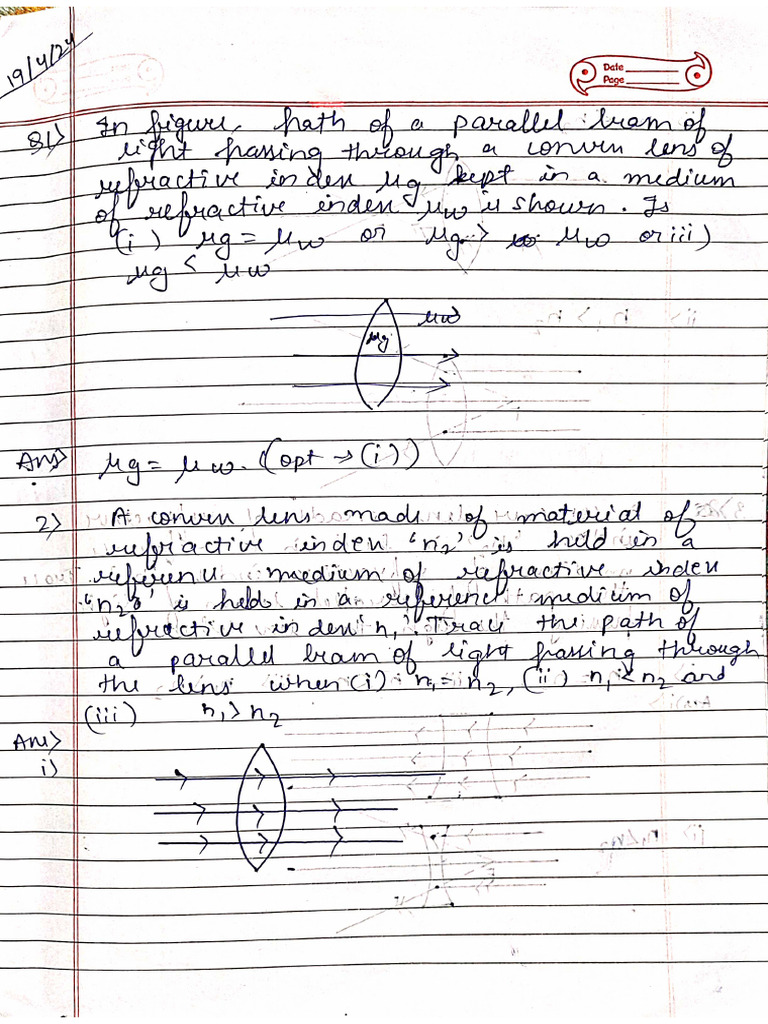 19/4/24
Date
Page
Q1) In figure, path of a parallel beam of
light passing through a convex lens of
refractive index μg kept in a medium
of refractive index μw is shown. Is
(i) μg = μw or μg > μw or iii)
μg < μw
μw
μg
Ans) μg = μw. (opt → (i))
2) A convex lens made of material of
refractive index 'n2' is held in a
reference medium of refractive index
'n2' is held in a reference medium of
refractive index n1. Trace the path of
a parallel beam of light passing through
the lens when (i) n1 = n2, (ii) n1 < n2 and
(iii) n1 > n2
Ans)
i)